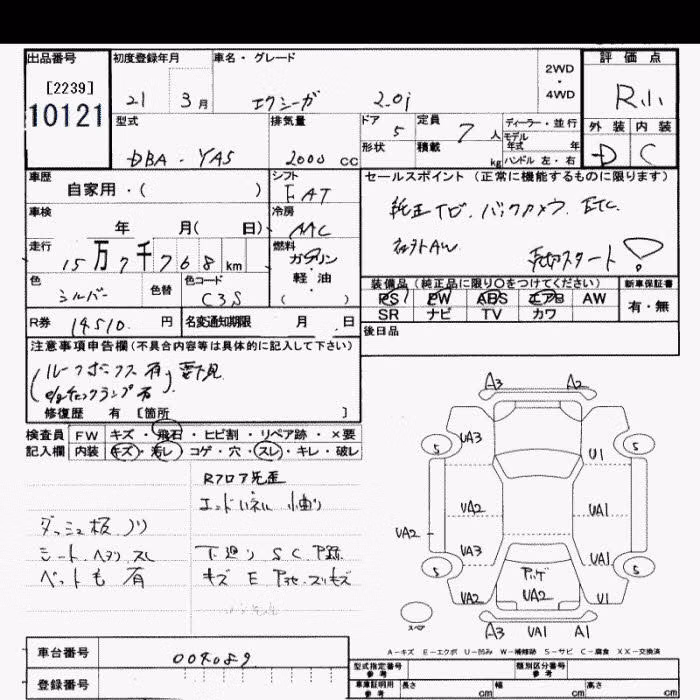 出品番号 初度登録年月 車名・グレード 評価点
[2239]
10121
21 3月 エクシーガ 2.0i 2WD・4WD R小
型式 排気量 ドア 5 定員 7人 ディーラー・並行 外装 内装
モデル年式 年
DBA-YA5 2000cc 形状 積載 kg ハンドル 左・右 D C
車歴 シフト セールスポイント(正常に機能するものに限ります)
自家用・( ) FAT
純正ナビ.バックカメラ.ETC.
車検 冷房
年 月( 日) AAC 社外AW.
走行 燃料
15万7千768km ガソリン
軽・油
( )
色 色替 色コード 装備品(純正品に限り○をつけてください) 新車保証書
シルバー C3S PS PW ABS エアB AW 有・無
SR ナビ TV カワ
R券 14510.円 名変通知期限 月 日 後日品
注意事項申告欄(不具合内容等は具体的に記入して下さい)
(ルーフボックス有)要下見
e/gチェックランプ有
修復歴 有 [箇所 ]
検査員 FW キズ・飛石・ヒビ割・リペア跡・×要
記入欄 内装 キズ・汚レ・コゲ・穴・スレ・キレ・破レ
Rフロア先歪
エンドパネル 小曲り
ダッシュ板 ノリ
シート.ヘタリ.スレ 下廻り S C P跡
ペットも 有
A3 A2
5 UA3 U1 5
UA2 UA2 UA1
UA3 UA1
5 5
UA2 UA2 U1
スペア A3 UA1 A1
A-キズ E-エクボ U-凹み W-補修跡 S-サビ C-腐食 XX-交換済
車台番号
登録番号
型式指定番号 参考 類別区分番号 参考
車庫証明用 参考 長さ cm 幅 cm 高さ cm